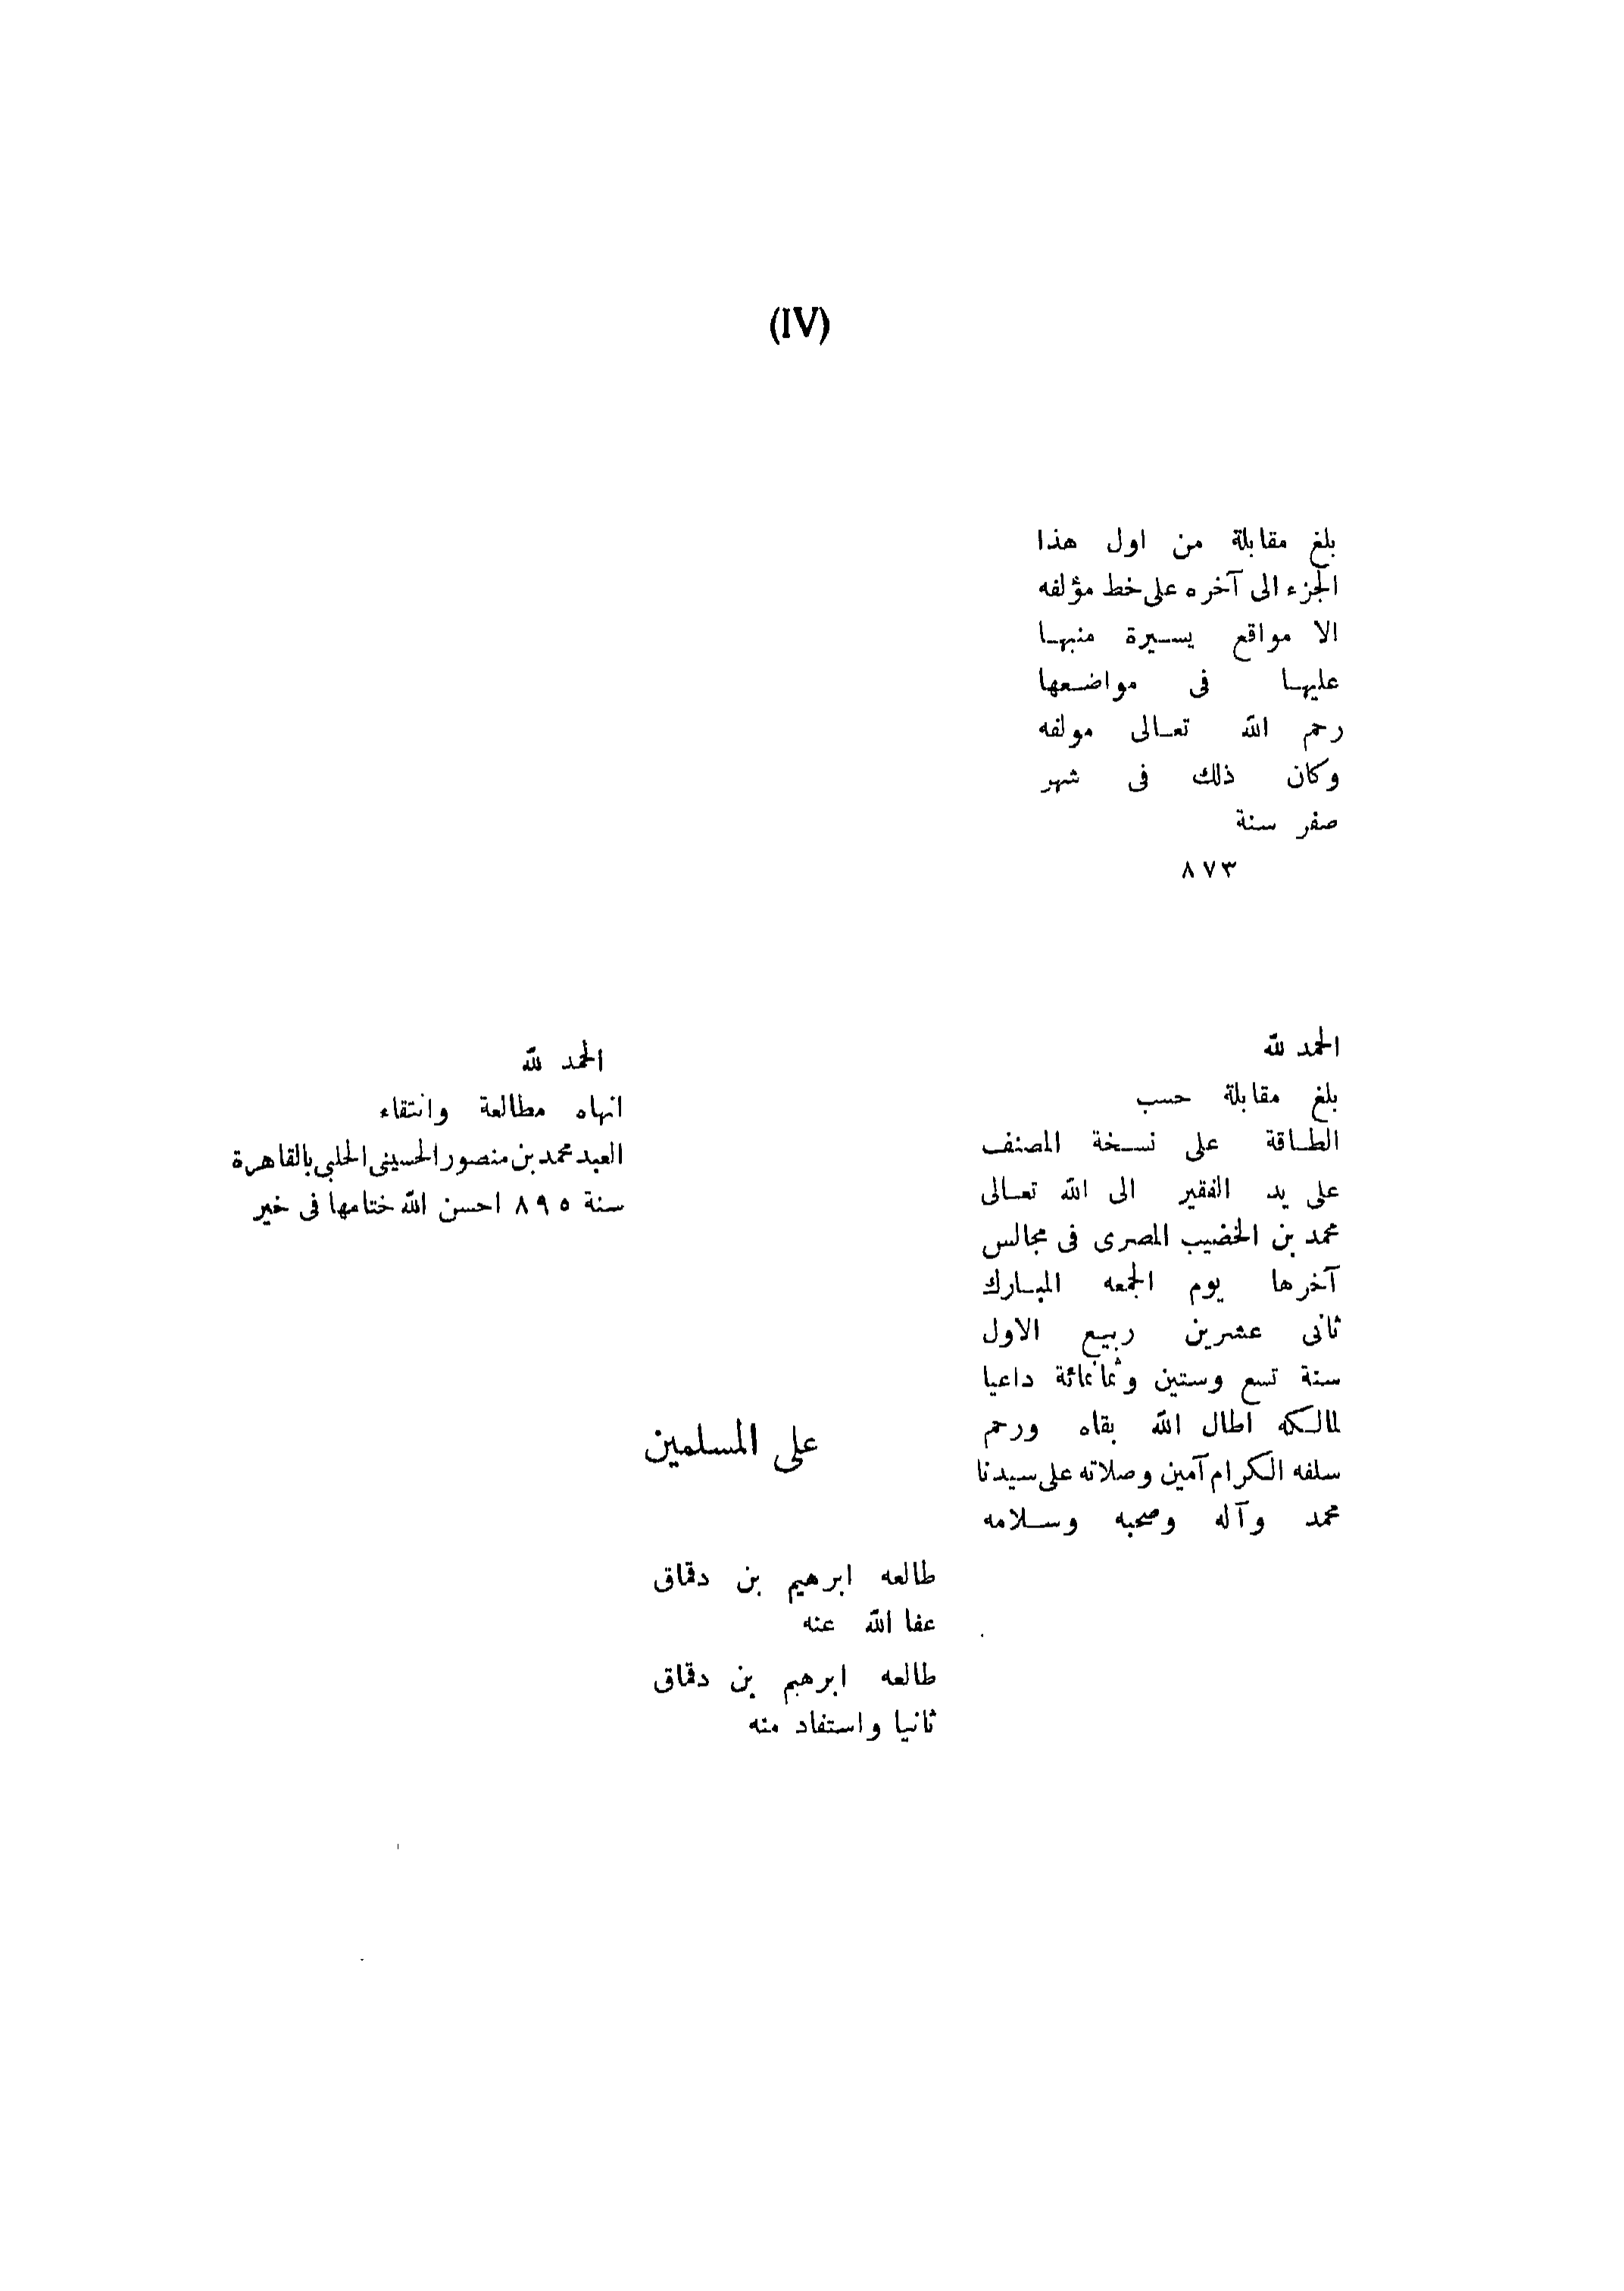 (IV)
بلغ مقابلة من اول هذا
الجزء الى آخره على خط مؤلفه
الا مواقع يسيرة منبها
عليها فى مواضعها
رحم الله تعالى مولفه
وكان ذلك فى شهر
صفر سنة
٨٧٣
الحمد لله
بلغ مقابلة حسب
الطاقة على نسخة المصنف
على يد الفقير الى الله تعالى
محمد بن الخضيب المصرى فى مجالس
آخرها يوم الجمعه المبارك
ثانى عشرين ربيع الاول
سنة تسع وستين وثمانمائة داعيا
لمالكه اطال الله بقاه ورحم
سلفه الكرام آمين وصلاته على سيدنا
محمد وآله وصحبه وسلامه
الحمد لله
انهاه مطالعة وانتقاء
العبد محمد بن منصور الحسينى الحلبى بالقاهرة
سنة ٨٩٥ احسن الله ختامها فى خير
على المسلمين
طالعه ابرهيم بن دقماق
عفا الله عنه
طالعه ابرهيم بن دقماق
ثانيا واستفاد منه